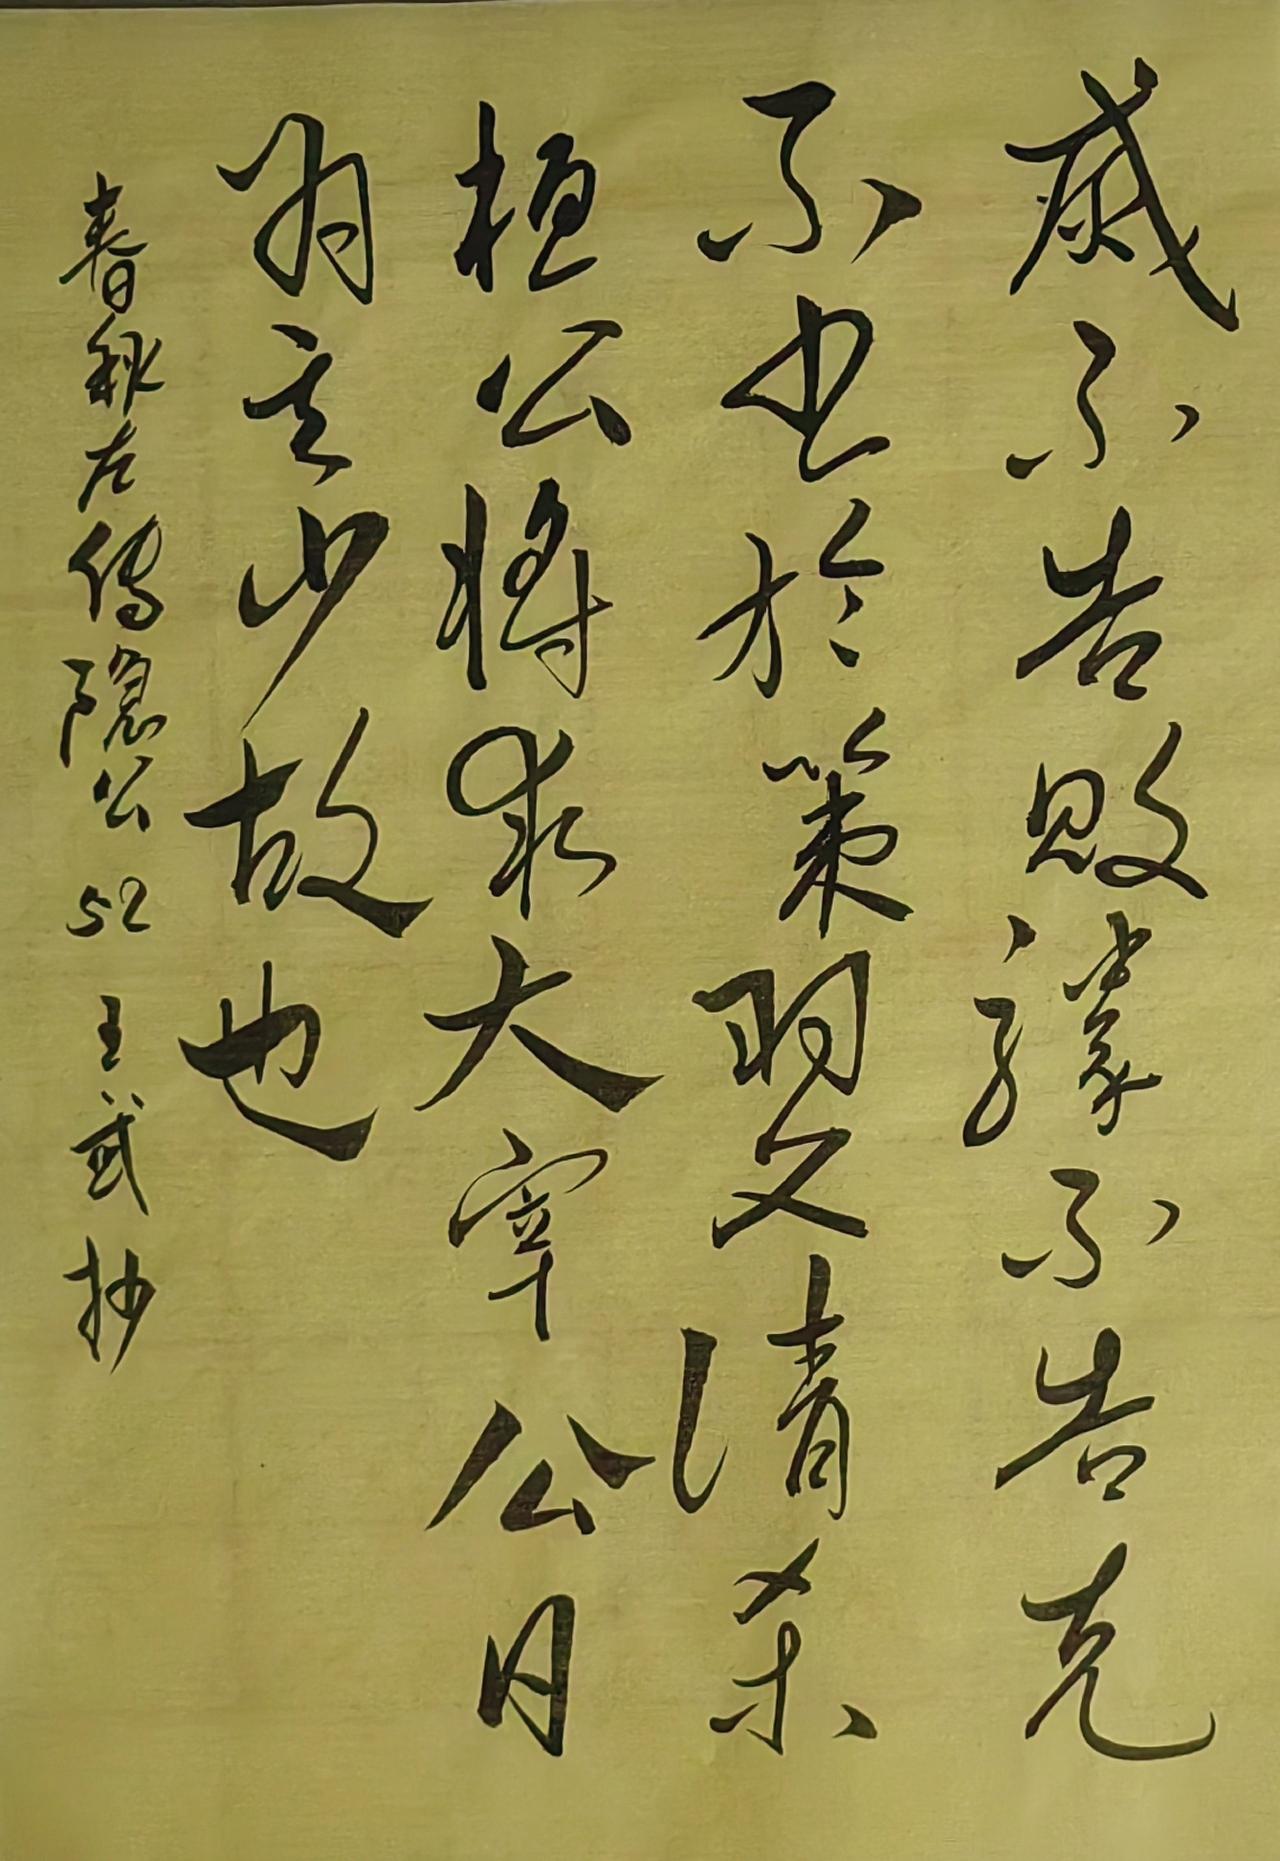 滅不告敗勝不告克
不書於策羽父請殺
桓公將求大宰公曰
為其少故也
春秋左傳隱公52 王武抄